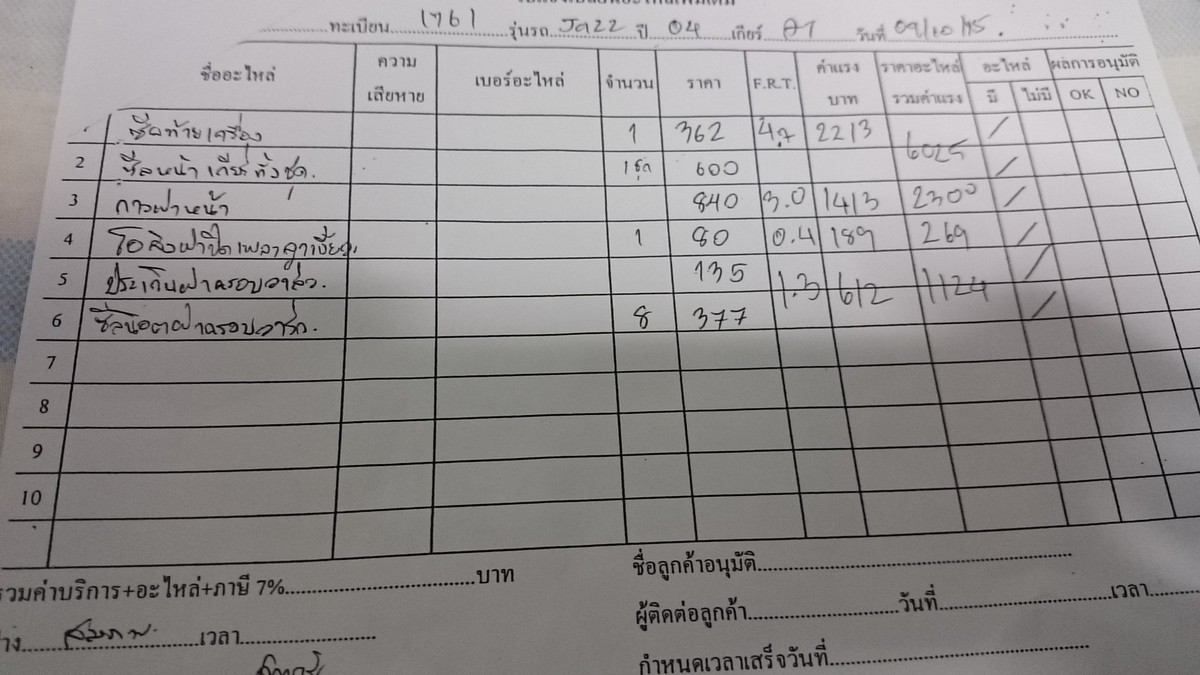 ทะเบียน 1761 รุ่นรถ Jazz ปี 04 เกียร์ AT วันที่ 09/10/15.
ชื่ออะไหล่ ความเสียหาย เบอร์อะไหล่ จำนวน ราคา F.R.T. ค่าแรง บาท ราคาอะไหล่ รวมค่าแรง อะไหล่ มี ไม่มี ผลการอนุมัติ OK NO
ซีลท้ายเครื่อง 1 362 4.7 2213 /
2 ซีลหน้าเกียร์ทั้งชุด. 1ชุด 600 6025 /
3 กาวฝาหน้า 840 3.0 1413 2300 /
4 โอริงฝาปิดเพลาลูกเบี้ยว. 1 80 0.4 189 269 /
5 ประเก็นฝาครอบวาล์ว. 135 1.3 612 1124 /
6 ซีลน๊อตฝาครอบวาล์ว. 8 377 /
7
8
9
10
รวมค่าบริการ+อะไหล่+ภาษี 7% บาท
ชื่อลูกค้าอนุมัติ
เวลา
ผู้ติดต่อลูกค้า วันที่ เวลา
กำหนดเวลาเสร็จวันที่